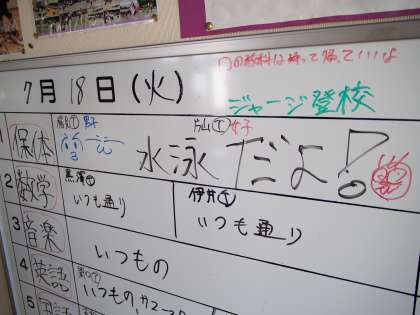 □の教科は持って帰っていいよ
7月18日(火)
ジャージ登校
1 保/体 男子 片山 T 女子
水泳だよ!
2 数学 黒澤 T いつも通り 伊井 T いつも通り
3 音楽 いつもの
4 英語 いつもの、
5 国語